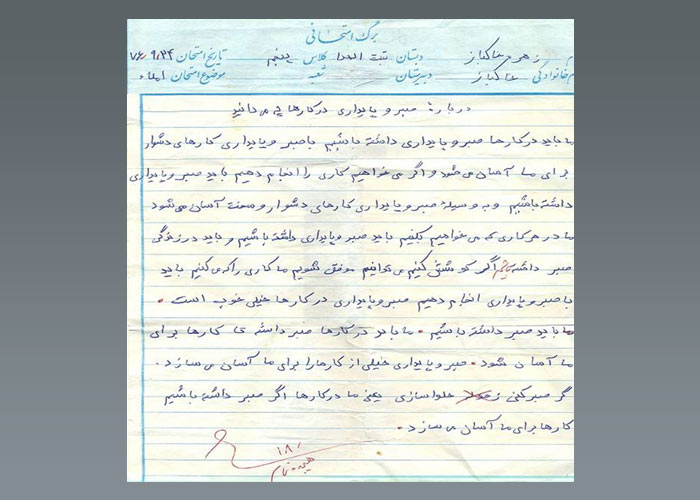 برگ امتحانی
زهره خاکباز دبستان بنت الهدا کلاس پنجم تاریخ امتحان ۷۶/۹/۲۴
نام خانوادگی خاکباز دبیرستان شعبه موضوع امتحان املاء
درباره صبر و پایداری در کارها چه می دانید
ما باید در کارها صبر و پایداری داشته باشیم با صبر و پایداری کارهای دشوار
برای ما آسان می شود و اگر می خواهیم کاری را انجام دهیم باید صبر و پایداری
داشته باشیم و به وسیله صبر و پایداری کارهای دشوار و سخت آسان می شود
ما در هر کاری که می خواهیم بکنیم باید صبر و پایداری داشته باشیم و باید در زندگی
صبر داشته باشیم اگر کوشش کنیم می توانیم موفق شویم ما کاری را که می کنیم باید
با صبر و پایداری انجام دهیم صبر و پایداری در کارها خیلی خوب است .
ما باید صبر داشته باشیم . ما باید در کارها صبر داشته تا کارها برای
ما آسان شود . صبر و پایداری خیلی از کارها را برای ما آسان می سازد .
گر صبر کنی ز حلوا سازی یعنی ما در کارها اگر صبر داشته باشیم
کارها برای ما آسان می سازد .
۱۸/
هیجده تمام